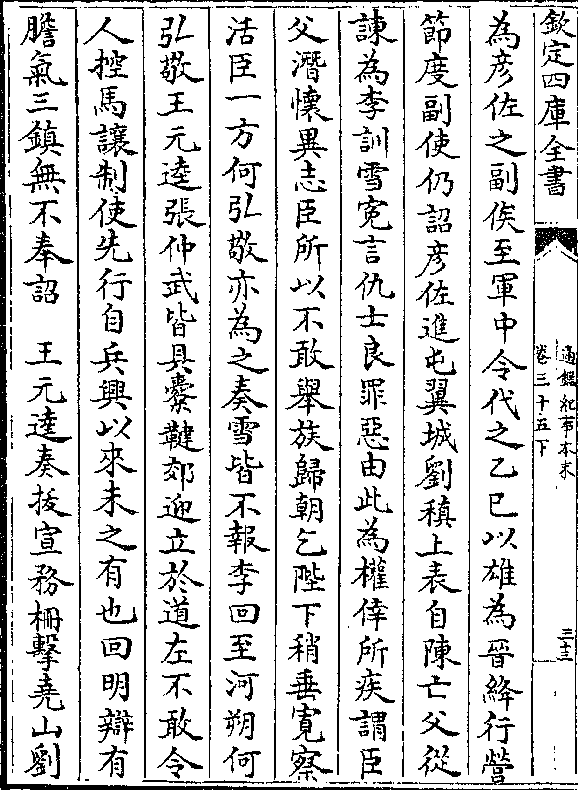 欽定四庫全書
通鑑紀事本末
卷三十五下
三三
為彦佐之副俟至軍中令代之乙巳以雄為晉絳行營
節度副使仍詔彦佐進屯翼城劉稹上表自陳亡父從
諫為李訓雪寃言仇士良罪惡由此為權倖所疾謂臣
父潛懷異志臣所以不敢舉族歸朝乞陛下稍垂寛察
活臣一方何弘敬亦為之奏雪皆不報李回至河朔何
弘敬王元逵張仲武皆具櫜鞬郊迎立於道左不敢令
人控馬讓制使先行自兵興以來未之有也回明辯有
膽氣三鎮無不奉詔　王元逵奏拔宣務柵擊堯山劉